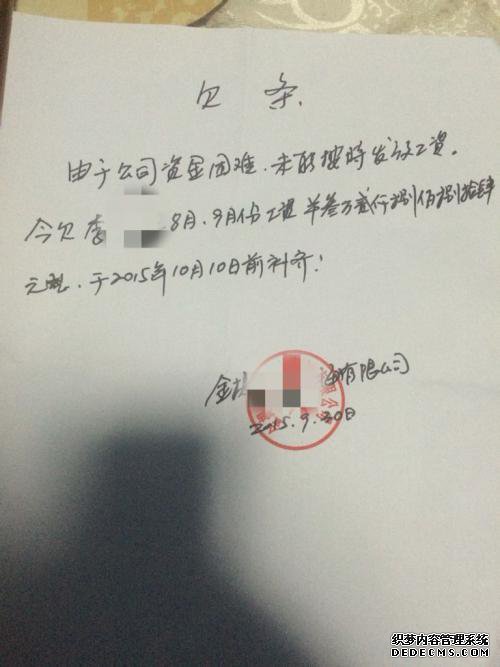 欠条.
由于公司资金困难.未能按时发放工资。
今欠李 8月、9月份工资 叁万贰仟捌佰捌拾肆
元整.于2015年10月10日前补齐!
金 有限公司
2015.9.30日
限公司
织梦内容管理系统
DEDECMS.COM